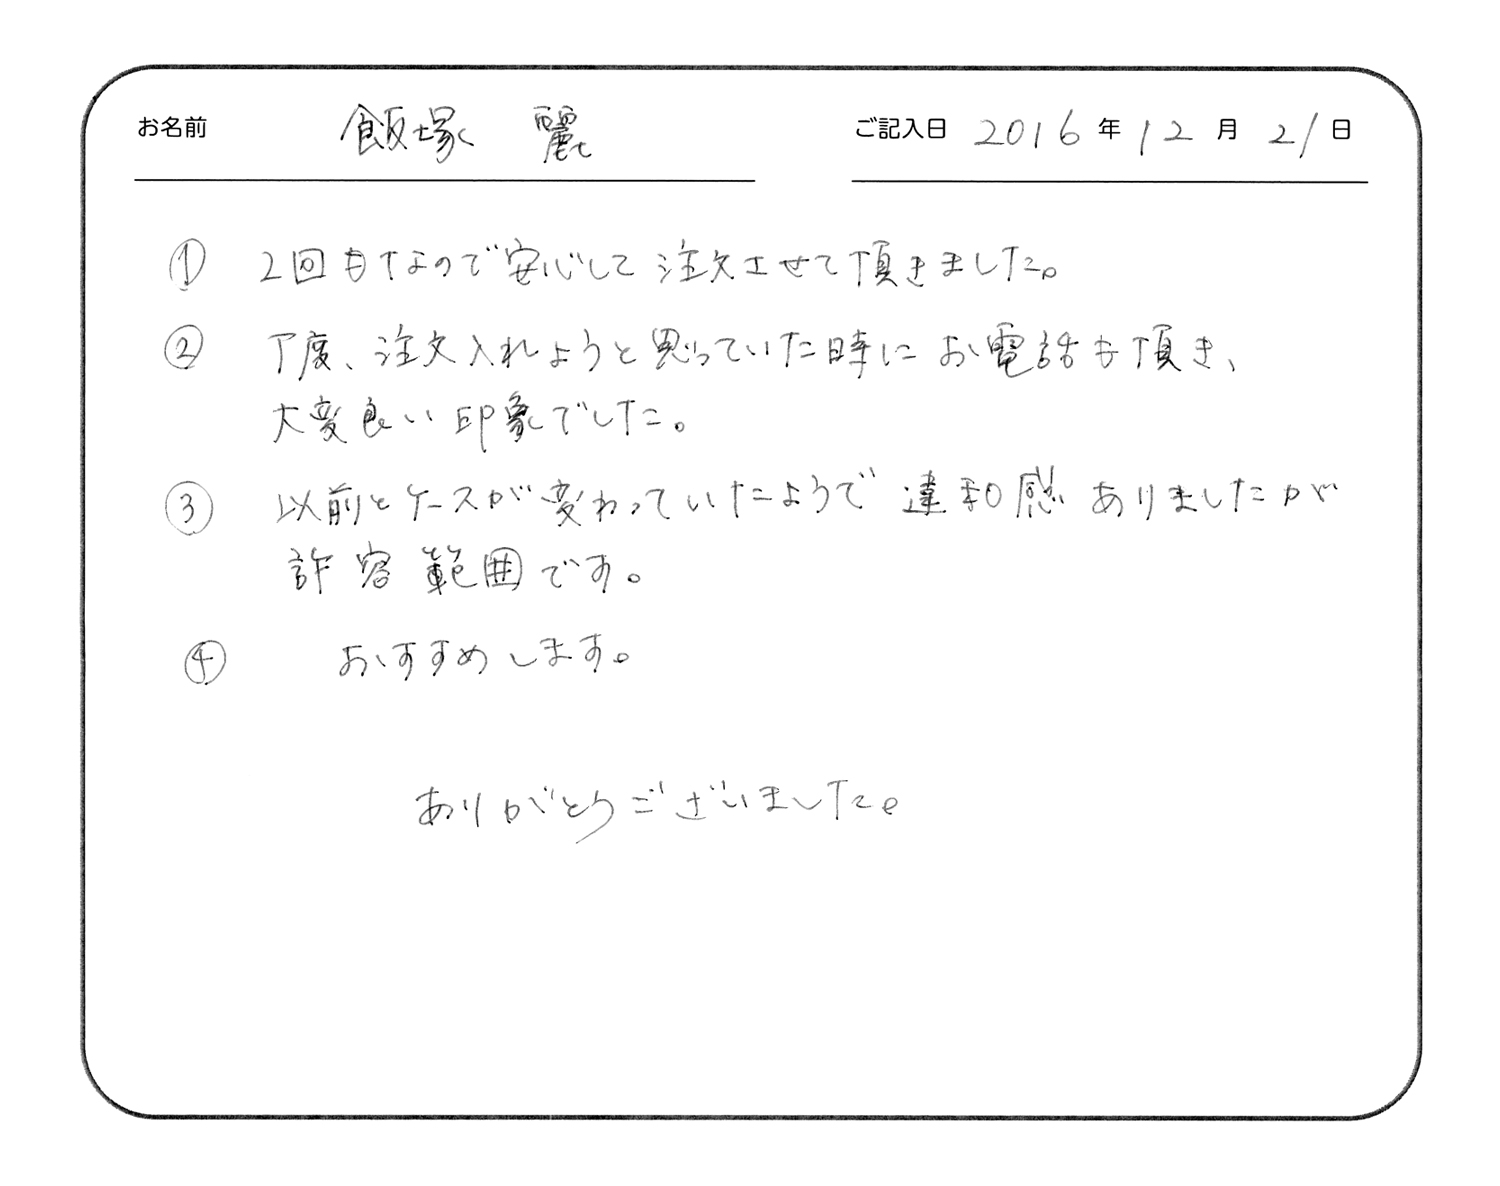 お名前 飯塚 麗 ご記入日 2016年12月21日
① 2回目なので安心して注文させて頂きました。
② 丁度、注文入れようと思っていた時にお電話も頂き、
大変良い印象でした。
③ 以前とケースが変わっていたようで違和感ありましたが
許容範囲です。
④ おすすめします。
ありがとうございました。